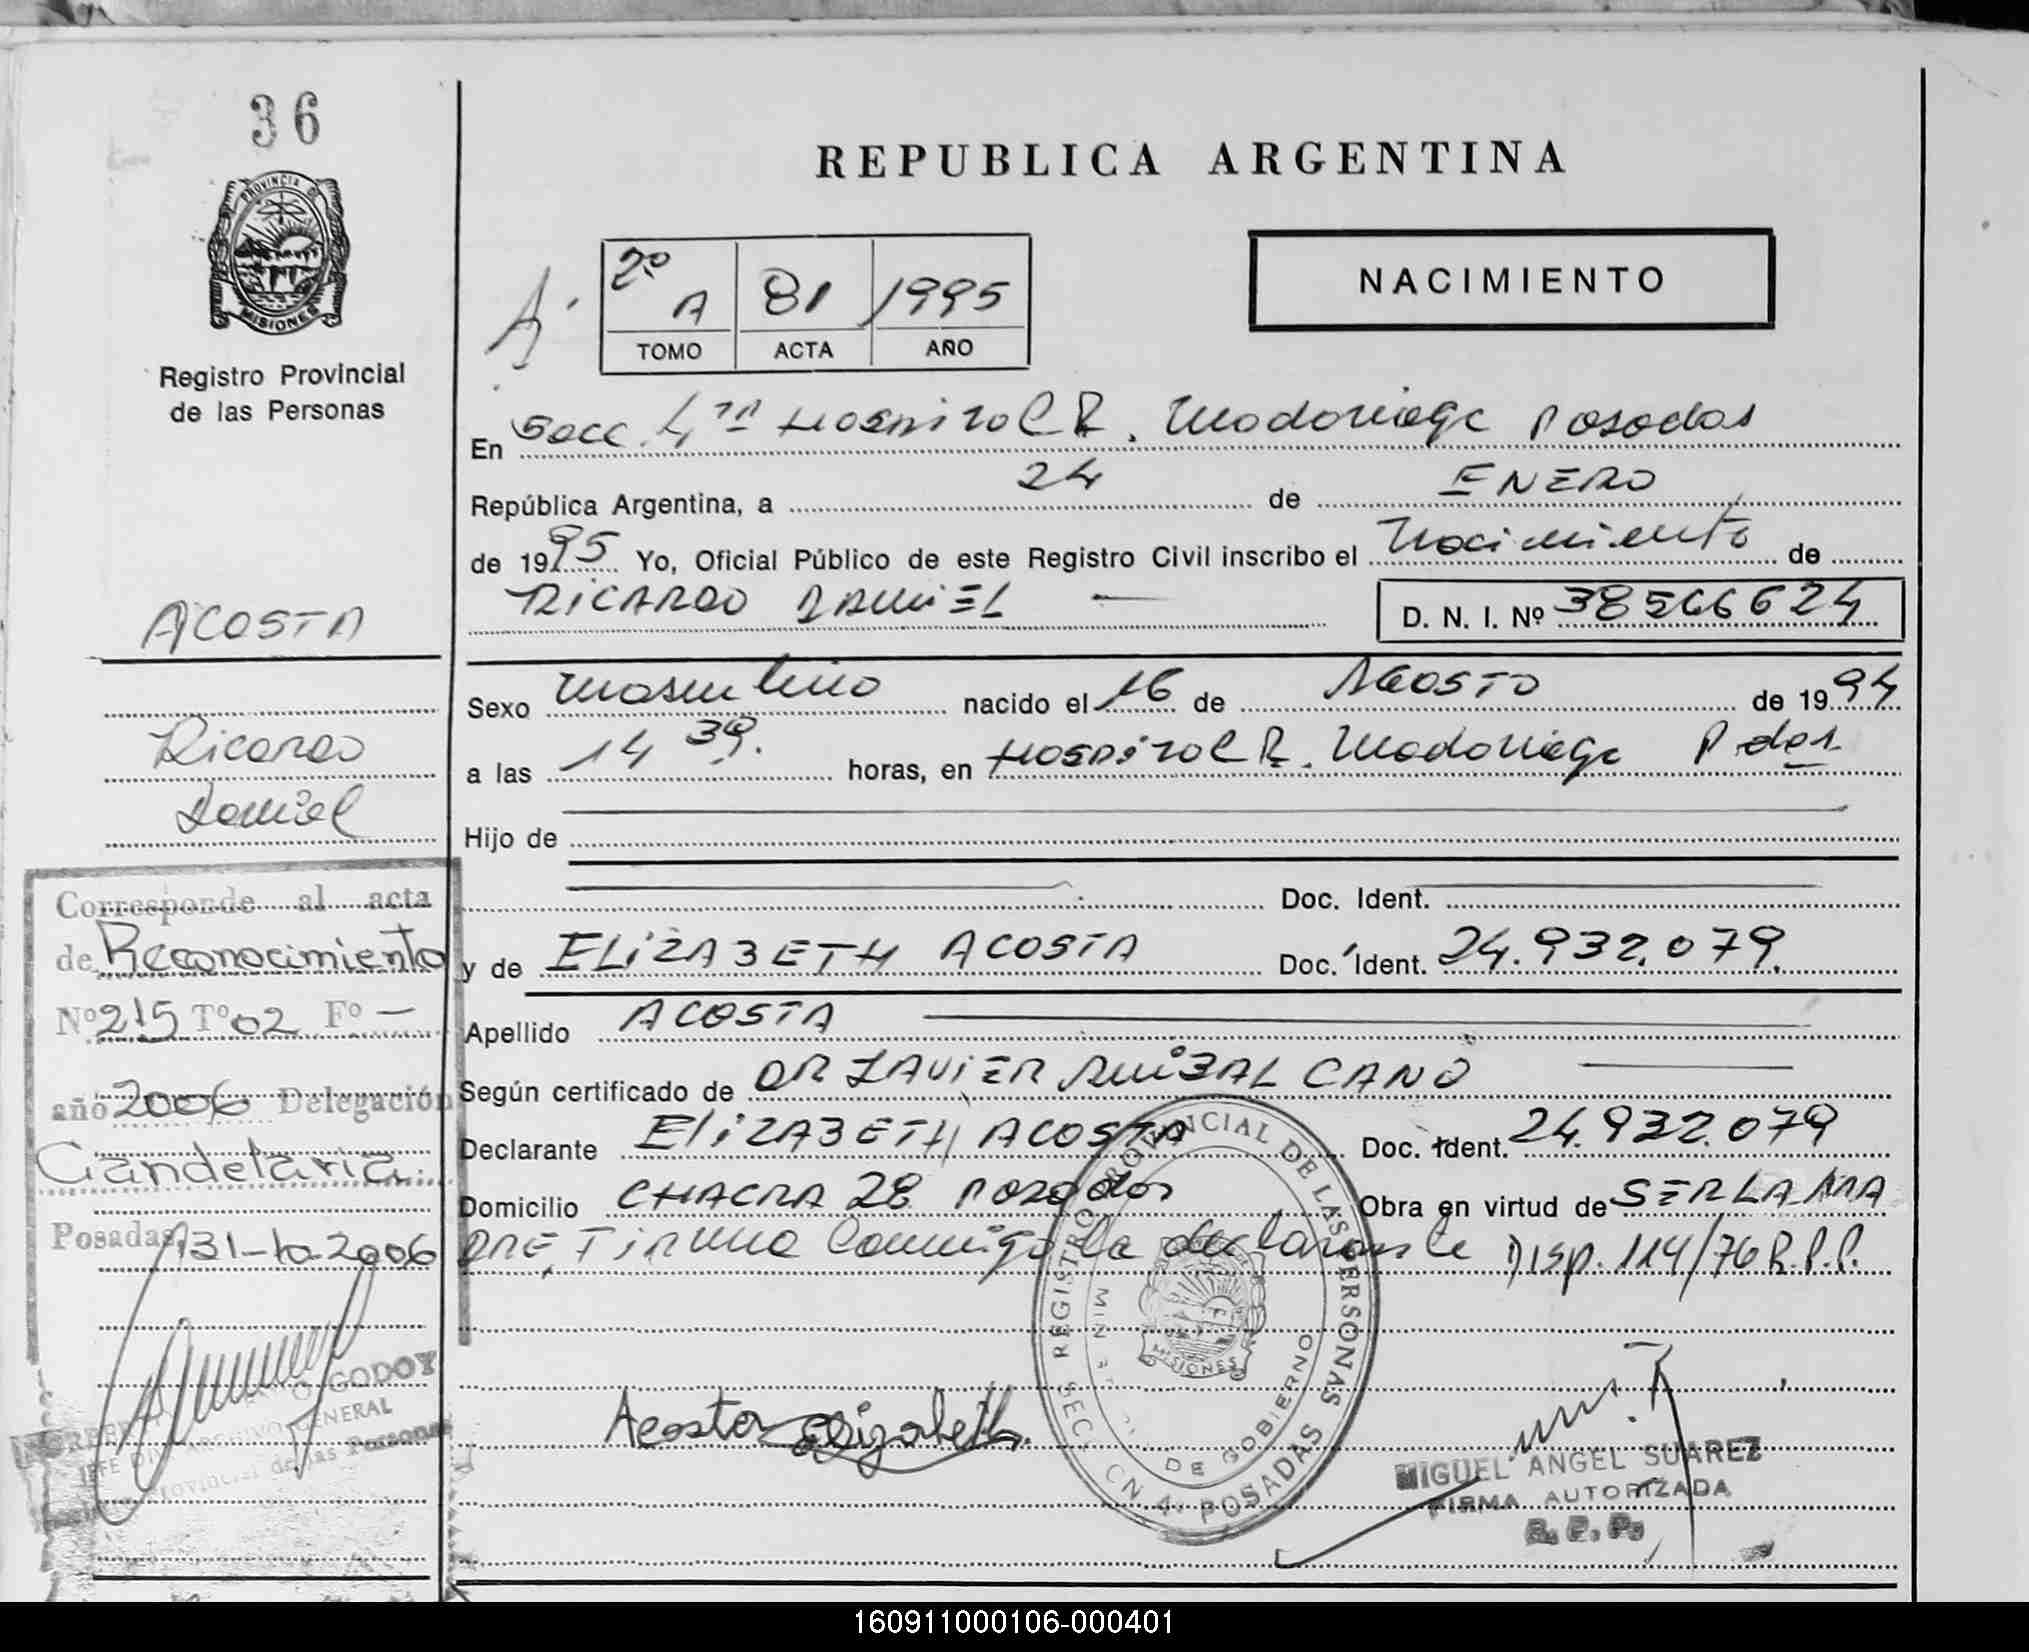 36
PROVINCIA DE
MISIONES
Registro Provincial
de las Personas
ACOSTA
Ricardo
Daniel
Corresponde al acta
de Reconocimiento
Nº 215 Tº 02 Fº —
año 2006 Delegación
Candelaria
Posadas, 31-10-2006
GODOY
ARCHIVO GENERAL
Provincial de las Personas
REPUBLICA ARGENTINA
2º A 81 1995
TOMO ACTA AÑO
NACIMIENTO
En Secc. 4ta Hospital R. Madariaga Posadas
República Argentina, a 24 de ENERO
de 1995 Yo, Oficial Público de este Registro Civil inscribo el Nacimiento de
RICARDO DANIEL — D. N. I. Nº 38566624
Sexo Masculino nacido el 16 de AGOSTO de 1994
a las 14 39. horas, en Hospital R. Madariaga Pdas
Hijo de
Doc. Ident.
y de ELIZABETH ACOSTA Doc. Ident. 24.932.079.
Apellido ACOSTA
Según certificado de DR JAVIER ANIBAL CANO
Declarante ELIZABETH ACOSTA Doc. Ident. 24.932.079
Domicilio CHACRA 28 Posadas Obra en virtud de SER LA MA
DRE, Firma Conmigo la declarante Disp. 114/76 R.P.P.
REGISTRO PROVINCIAL DE LAS PERSONAS
DE GOBIERNO
MISIONES
SECCION 4ª POSADAS
Acosta Elizabeth
MIGUEL ANGEL SUAREZ
FIRMA AUTORIZADA
R. P. P.
160911000106-000401